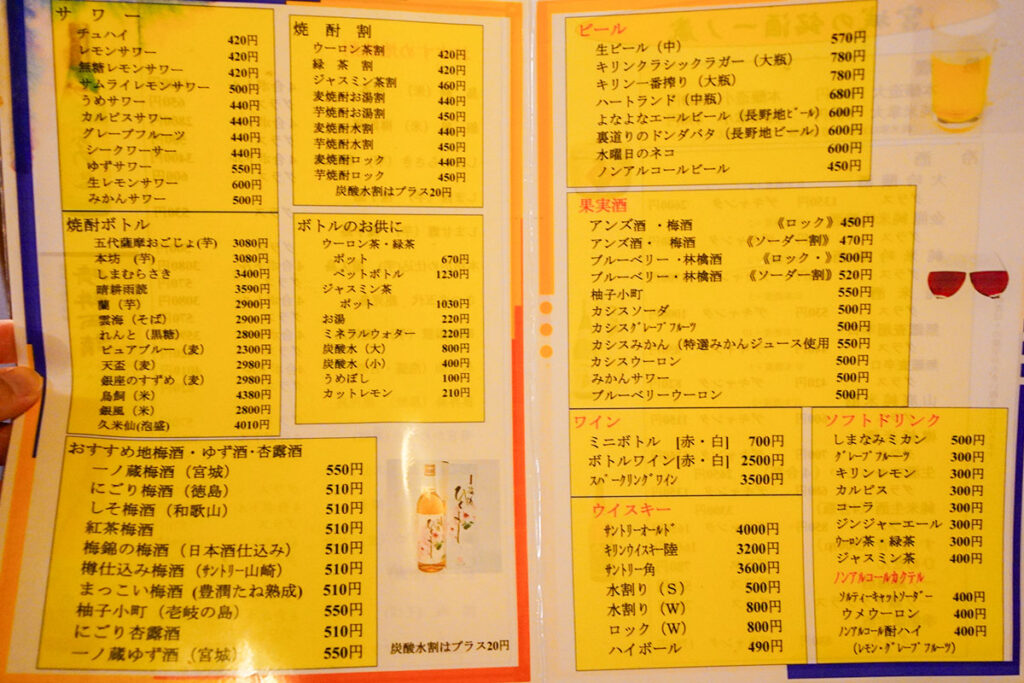 サワー
チュハイ 420円
レモンサワー 420円
無糖レモンサワー 420円
サムライレモンサワー 500円
うめサワー 440円
カルピスサワー 440円
グレープフルーツ 440円
シークワーサー 440円
ゆずサワー 550円
生レモンサワー 600円
みかんサワー 500円
焼酎割
ウーロン茶割 420円
緑茶割 420円
ジャスミン茶割 460円
麦焼酎お湯割 440円
芋焼酎お湯割 450円
麦焼酎水割 440円
芋焼酎水割 450円
麦焼酎ロック 440円
芋焼酎ロック 450円
炭酸水割はプラス20円
焼酎ボトル
五代薩摩おごじょ(芋) 3080円
本坊 (芋) 3080円
しまむらさき 3400円
晴耕雨読 3590円
蘭(芋) 2900円
雲海(そば) 2900円
れんと(黒糖) 2800円
ピュアブルー(麦) 2300円
天盃(麦) 2980円
銀座のすずめ(麦) 2980円
鳥飼(米) 4380円
銀風(米) 2800円
久米仙(泡盛) 4010円
ボトルのお供に
ウーロン茶・緑茶
ポット 670円
ペットボトル 1230円
ジャスミン茶
ポット 1030円
お湯 220円
ミネラルウォター 220円
炭酸水(大) 800円
炭酸水(小) 400円
うめぼし 100円
カットレモン 210円
おすすめ地梅酒・ゆず酒・杏露酒
一ノ蔵梅酒(宮城) 550円
にごり梅酒(徳島) 510円
しそ梅酒(和歌山) 510円
紅茶梅酒 510円
梅錦の梅酒(日本酒仕込み) 510円
樽仕込み梅酒(サントリー山崎) 510円
まっこい梅酒(豊潤たね熟成) 510円
柚子小町(壱岐の島) 550円
にごり杏露酒 510円
一ノ蔵ゆず酒(宮城) 550円
炭酸水割はプラス20円
ビール
生ビール(中) 570円
キリンクラシックラガー(大瓶) 780円
キリン一番搾り(大瓶) 780円
ハートランド(中瓶) 680円
よなよなエールビール(長野地ビール) 600円
裏道りのドンダバタ(長野地ビール) 600円
水曜日のネコ 600円
ノンアルコールビール 450円
果実酒
アンズ酒・梅酒 《ロック》 450円
アンズ酒・梅酒 《ソーダー割》 470円
ブルーベリー・林檎酒 《ロック・》 500円
ブルーベリー・林檎酒 《ソーダー割》 520円
柚子小町 550円
カシスソーダ 500円
カシスグレープフルーツ 500円
カシスみかん(特選みかんジュース使用 550円
カシスウーロン 500円
みかんサワー 500円
ブルーベリーウーロン 500円
ワイン
ミニボトル [赤・白] 700円
ボトルワイン[赤・白] 2500円
スパークリングワイン 3500円
ウイスキー
サントリーオールド 4000円
キリンウイスキー陸 3200円
サントリー角 3600円
水割り(S) 500円
水割り(W) 800円
ロック(W) 800円
ハイボール 490円
ソフトドリンク
しまなみミカン 500円
グレープフルーツ 300円
キリンレモン 300円
カルピス 300円
コーラ 300円
ジンジャーエール 300円
ウーロン茶・緑茶 300円
ジャスミン茶 400円
ノンアルコールカクテル
ソルティーキャットソーダー 400円
ウメウーロン 400円
ノンアルコール酎ハイ 400円
(レモン・グレープフルーツ)